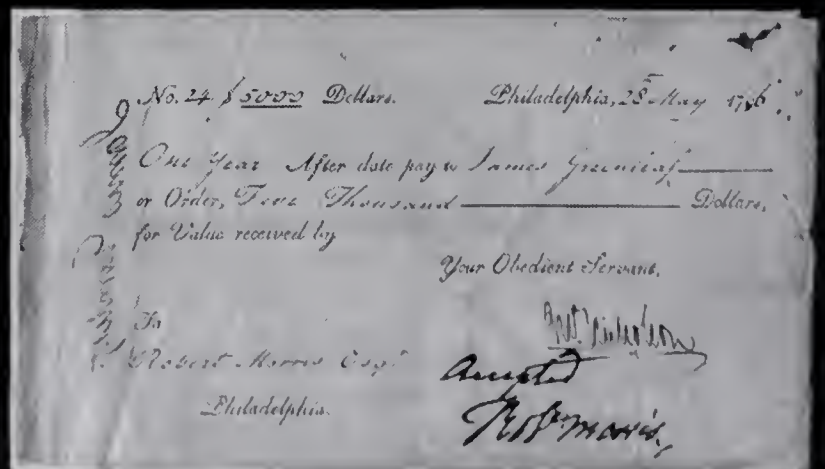 No. 24 $ 5000 Dollars. Philadelphia, 28 May
One Year After date pay to James Greenleaf
or Order, Five Thousand Dollars,
for Value received by
Your Obedient Servant,
To
Robert Morris Esqr.
Philadelphia.
Accepted
Robt Morris